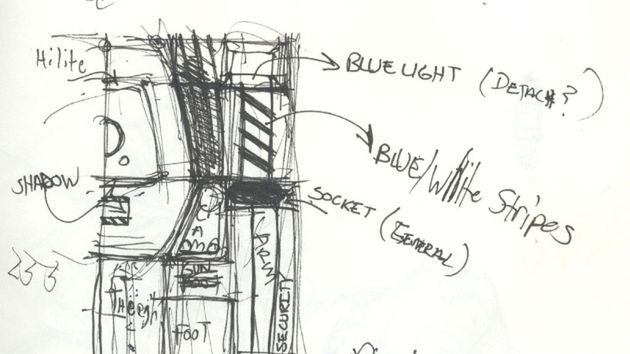 Hilite
BLUE LIGHT (DETACH?)
BLUE/White Stripes
SHADOW
SOCKET (GENERAL)
ARM
SECURITY
GUN
Theegh
FOOT